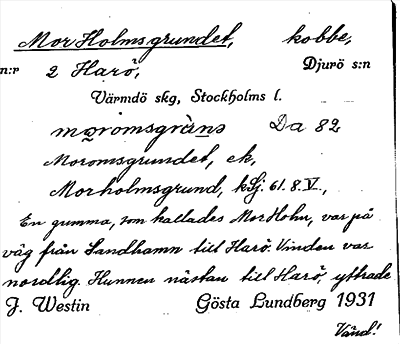 Mor Holmsgrundet, kobbe,
n:r 2 Harö, Djurö s:n
Värmdö skg, Stockholms l.
mo̤romsgrànə Da 82
Moromsgrundet, ek,
Morholmsgrund, kSj. 61. 8. V.,
En gumma, som kallades Mor Holm, var på
väg från Sandhamn till Harö. Vinden var
nordlig. Hunnen nästan till Harö, yttrade
J. Westin Gösta Lundberg 1931
Vänd!